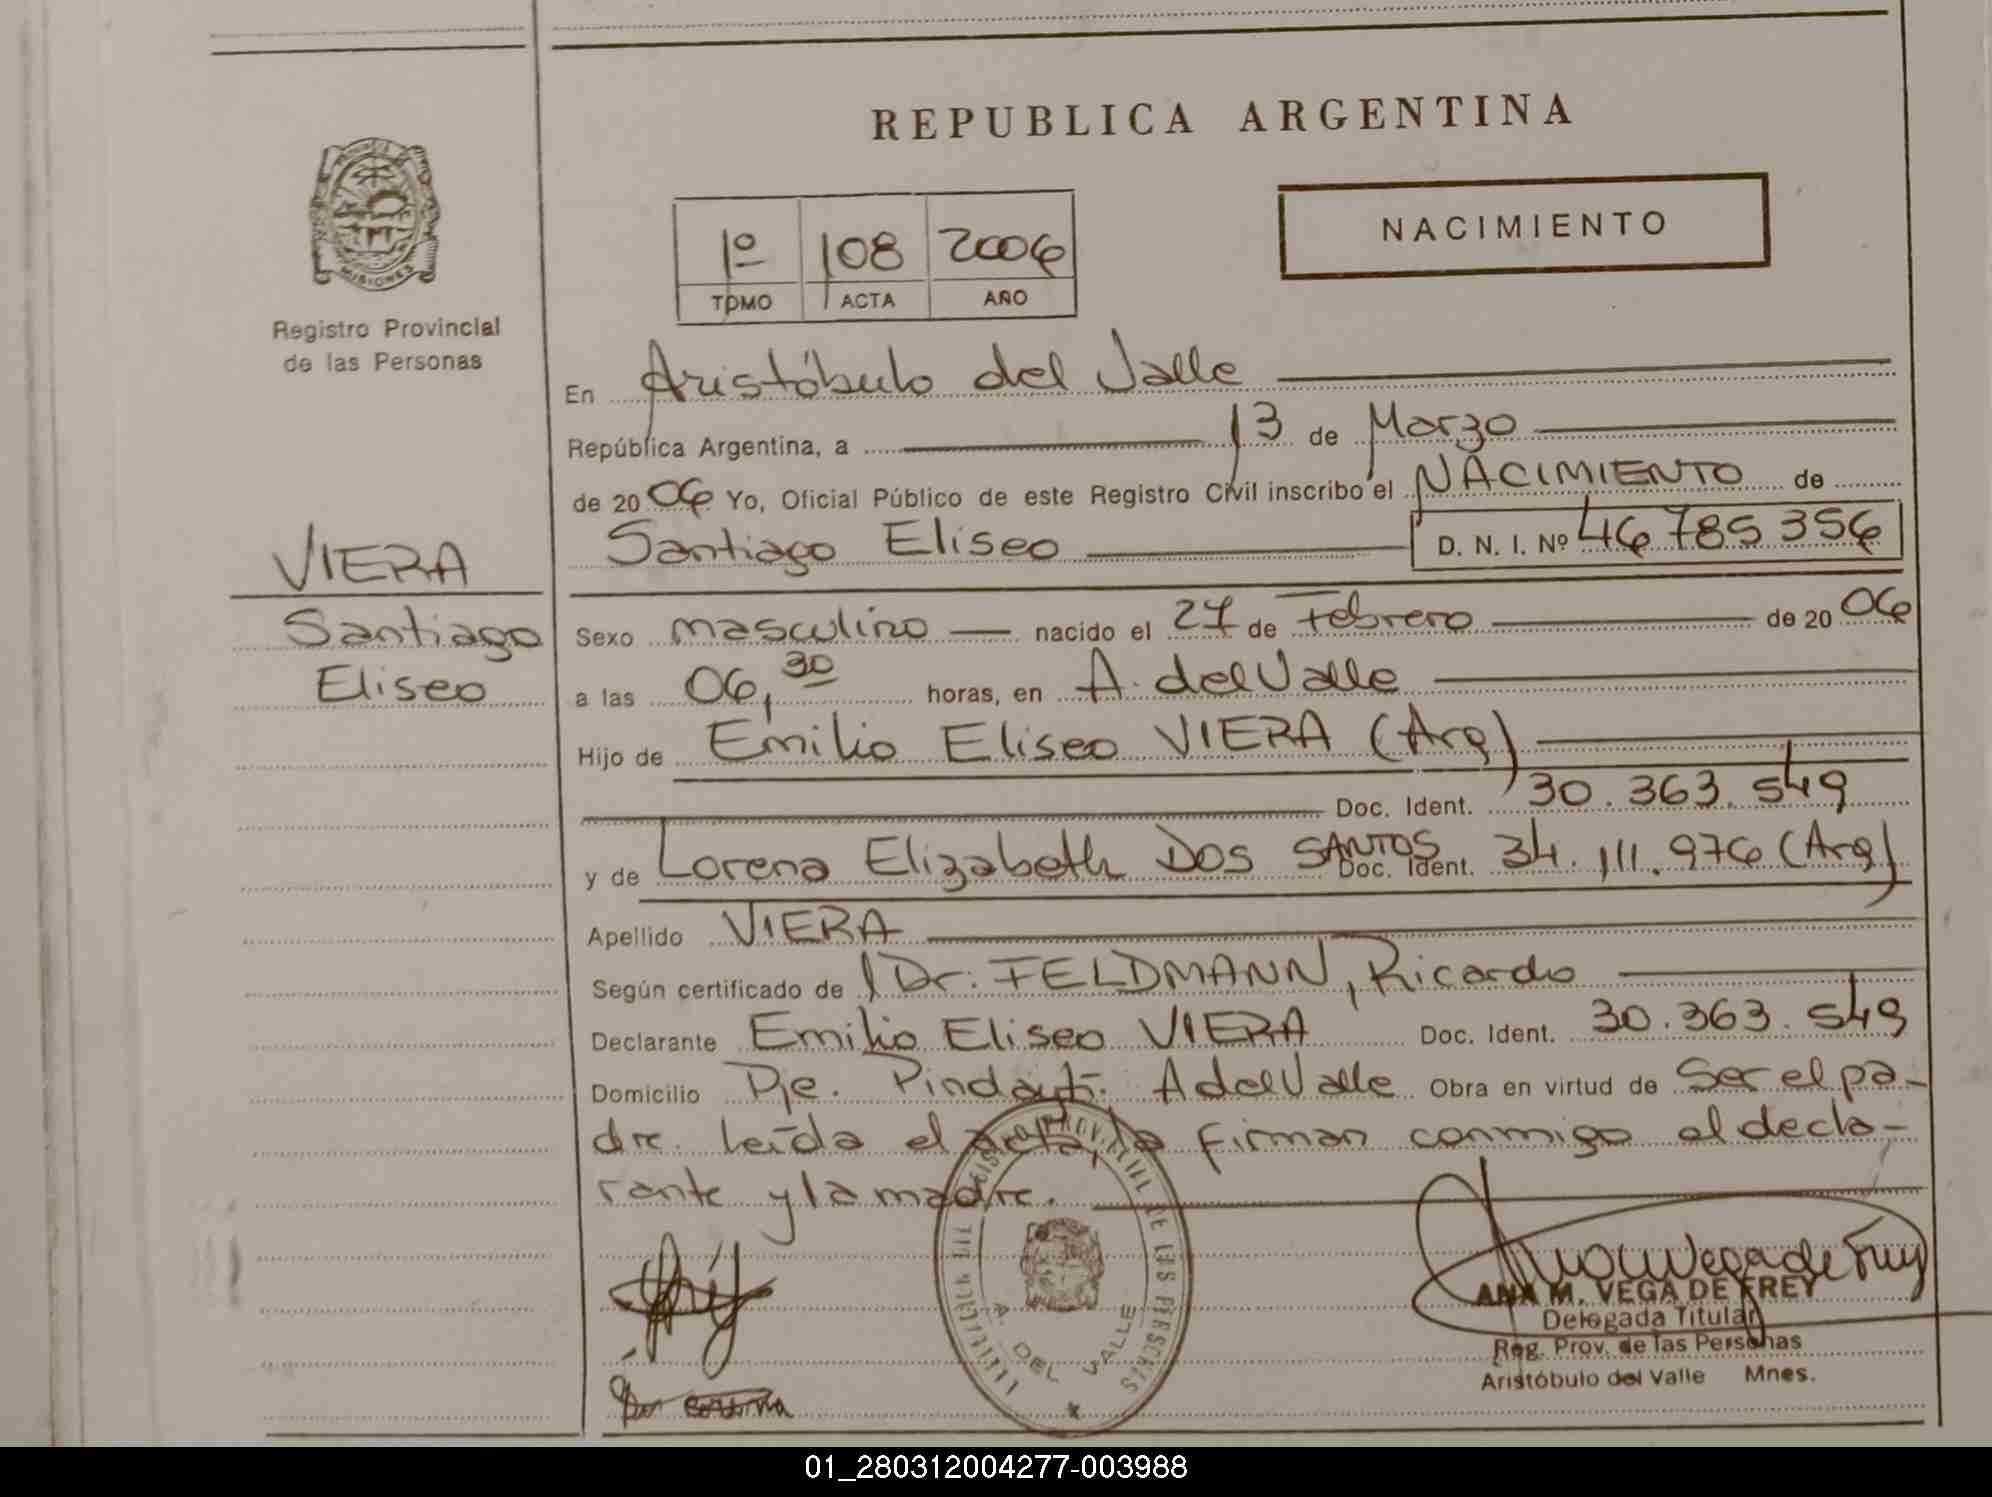 REPUBLICA ARGENTINA
NACIMIENTO
1º 108 2006
TOMO ACTA AÑO
MISIONES
Registro Provincial
de las Personas
En Aristóbulo del Valle
República Argentina, a 13 de Marzo
de 2006 Yo, Oficial Público de este Registro Civil inscribo el NACIMIENTO de
Santiago Eliseo D. N. I. Nº 46 785 356
VIERA
Santiago
Eliseo
Sexo masculino nacido el 27 de Febrero de 2006
a las 06,30 horas, en A. del Valle
Hijo de Emilio Eliseo VIERA (Arg)
Doc. Ident. 30.363.549
y de Lorena Elizabeth Dos SANTOS Doc. Ident. 34.111.976 (Arg)
Apellido VIERA
Según certificado de Dr. FELDMANN, Ricardo
Declarante Emilio Eliseo VIERA Doc. Ident. 30.363.549
Domicilio Pje. Pindaytí. A del Valle Obra en virtud de Ser el pa-
dre. leída el acta, la firman conmigo el decla-
rante y la madre.
A. DEL VALLE
ANA M. VEGA DE FREY
Delegada Titular
Reg. Prov. de las Personas
Aristóbulo del Valle Mnes.
01_280312004277-003988